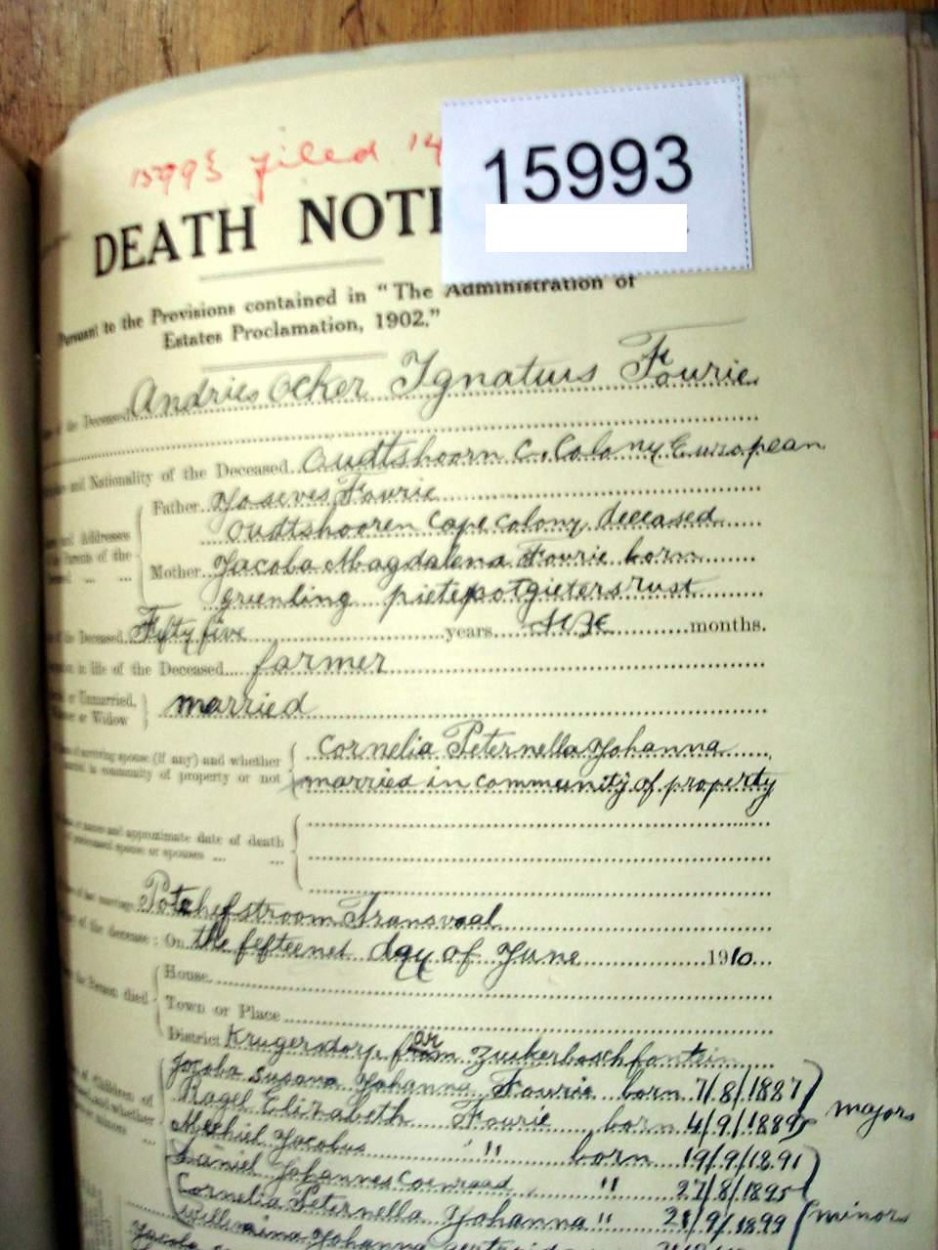 15993 filed 14
15993
DEATH NOTI
Pursuant to the Provisions contained in "The Administration of
Estates Proclamation, 1902."
the Deceased Andries Ocker Ignatius Fourie
and Nationality of the Deceased Oudtshoorn C. Colony European
Father Joseves Fourie
Addresses Oudtshooren Cape Colony deceased
Parents of the
Mother Jacoba Magdalena Fourie born
greenling pietepotgietersrust
of the Deceased Fifty five years months.
in life of the Deceased farmer
or Unmarried,
or Widow married
of surviving spouse (if any) and whether Cornelia Peternella Johanna
in community of property or not married in community of property
names and approximate date of death
spouse or spouses
Potchefstroom Transvaal
of the decease: On the fefteenet day of June 1910
House
the Person died
Town or Place
District Krugersdorp farm Zuikerboschfontein
Jacoba Susana Johanna Fourie born 7/8/1887
of Children of Ragel Elizabeth Fourie born 4/9/1889 majors
and whether Mechiel Jacobus " born 19/9/1891
Daniel Johannes Coenraad " 27/8/1895
Cornelia Peternella Johanna " 21/9/1899 minors
Willemina Johanna
Jacoba